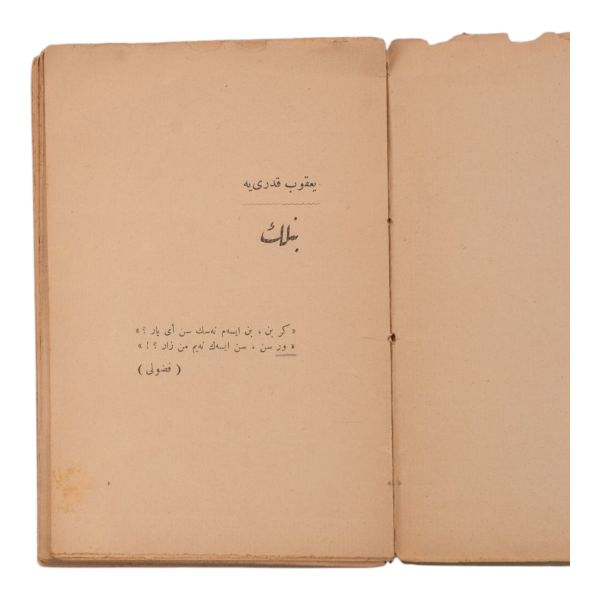 يعقوب قدرى‌يه
بنلك
« كر بن ، بن ايسه‌م نه‌سك سن أى يار ؟ »
« ور سن ، سن ايسه‌ك نه‌يم من زار ؟ ! »
( فضولى )